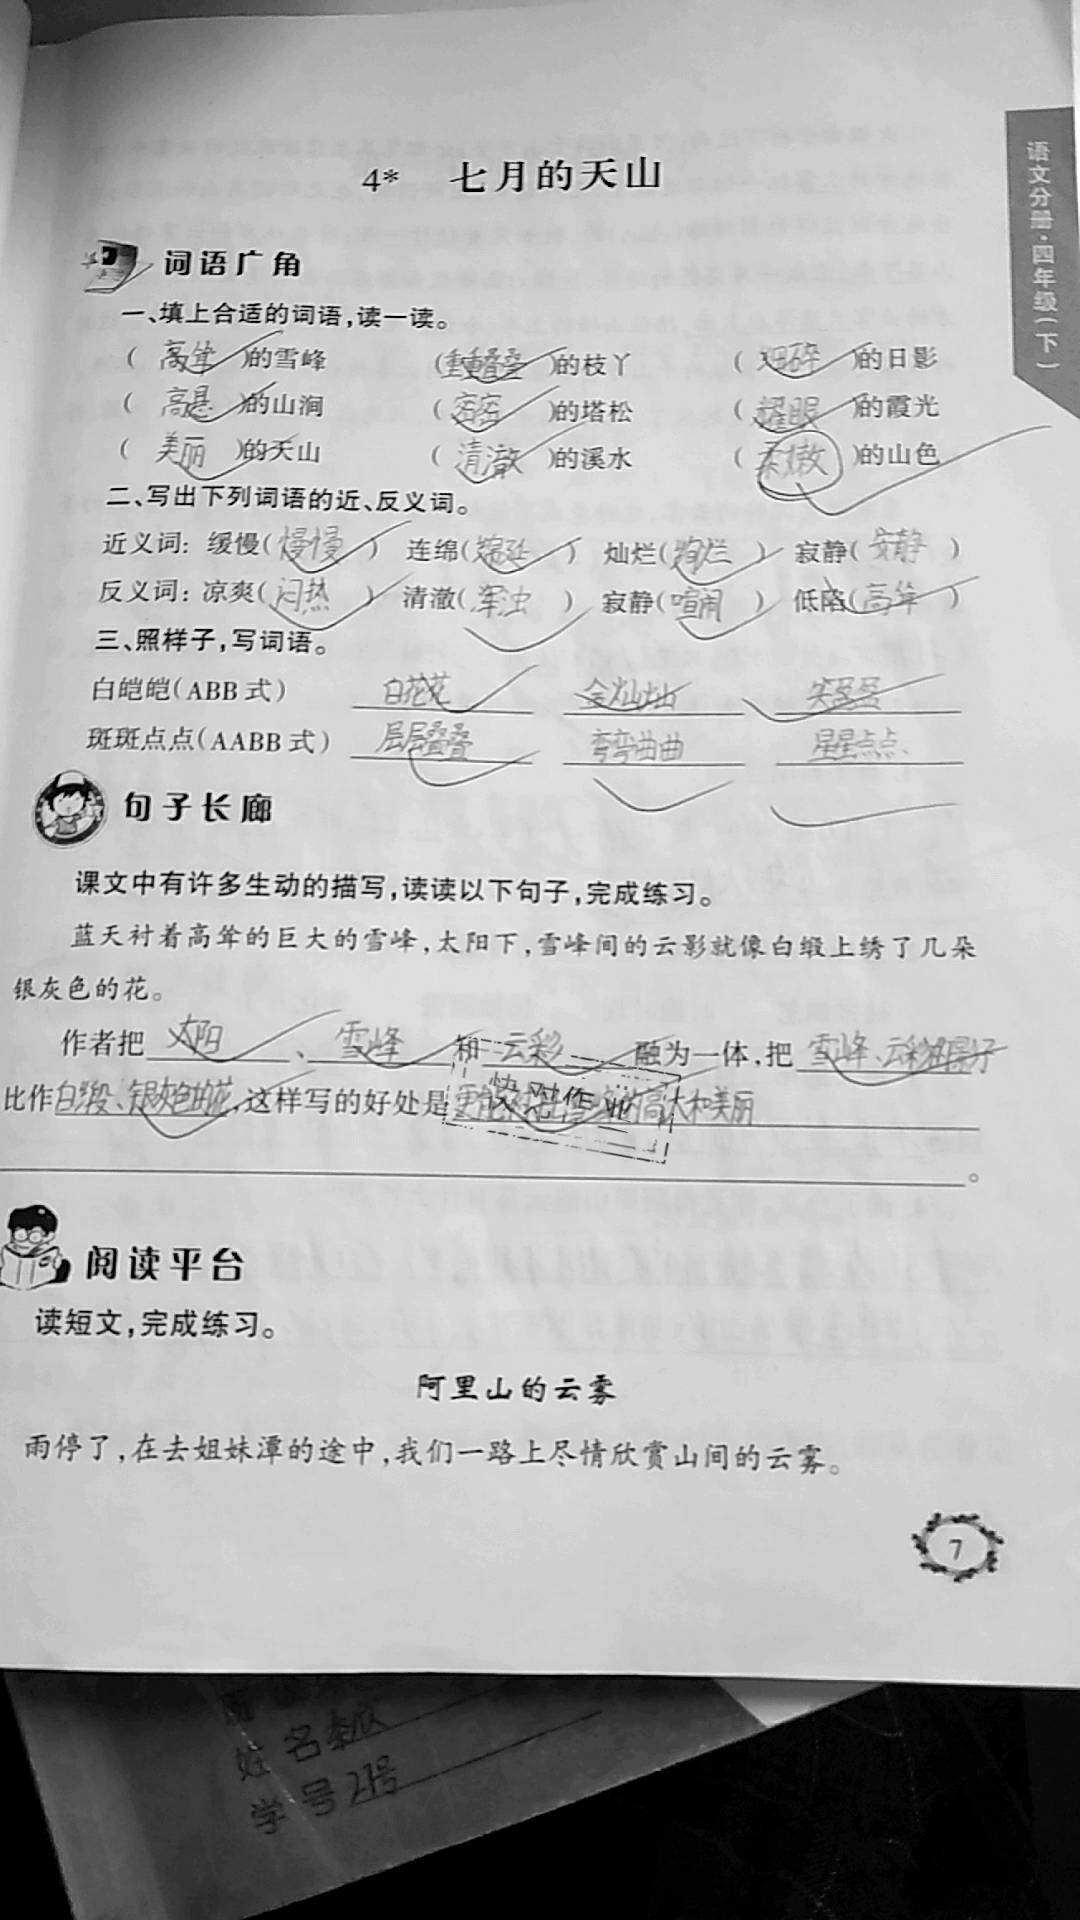 语文分册·四年级(下)
4* 七月的天山
词语广角
一、填上合适的词语,读一读。
( 高耸 )的雪峰 (重重叠叠)的枝丫 ( 细碎 )的日影
( 高悬 )的山涧 ( 密密 )的塔松 ( 耀眼 )的霞光
( 美丽 )的天山 ( 清澈 )的溪水 ( 柔嫩 )的山色
二、写出下列词语的近、反义词。
近义词: 缓慢(慢慢) 连绵(绵延) 灿烂(绚烂) 寂静(安静)
反义词: 凉爽(闷热) 清澈(浑浊) 寂静(喧闹) 低陷(高耸)
三、照样子,写词语。
白皑皑(ABB式) 白花花 金灿灿 笑盈盈
斑斑点点(AABB式) 层层叠叠 弯弯曲曲 星星点点
句子长廊
课文中有许多生动的描写,读读以下句子,完成练习。
蓝天衬着高耸的巨大的雪峰,太阳下,雪峰间的云影就像白缎上绣了几朵
银灰色的花。
作者把 太阳 、 雪峰 和 云彩 融为一体,把 雪峰、云彩和影子
比作白缎、银灰色的花,这样写的好处是 的高大和美丽
。
快对作业
阅读平台
读短文,完成练习。
阿里山的云雾
雨停了,在去姐妹潭的途中,我们一路上尽情欣赏山间的云雾。
7
姓 名
学 号 21号